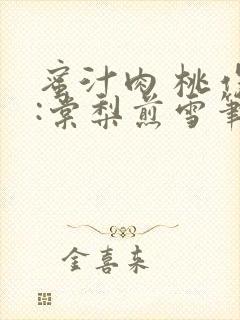 蜜汁肉桃作
:棠梨煎雪筆
金喜来